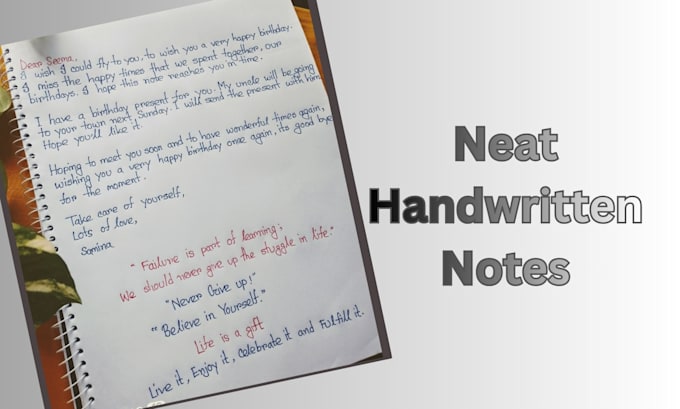 Dear Seema,
I wish I could fly to you. to wish you a very happy birthday.
I miss the happy times that we spent together, our
birthdays. I hope this note reaches you in time.
I have a birthday present for you. My uncle will be going
to your town next Sunday. I will send the present with him
Hope you'll like it.
Hoping to meet you soon and to have wonderful times again,
wishing you a very happy birthday once again, its good bye
for the moment.
Take care of yourself,
Lots of love,
Samina
"Failure is part of learning;
We should never give up the stuggle in life."
"Never Give up!"
"Believe in Yourself."
Life is a gift
Live it, Enjoy it, Celebrate it and Fulfill it.
Neat
Handwritten
Notes